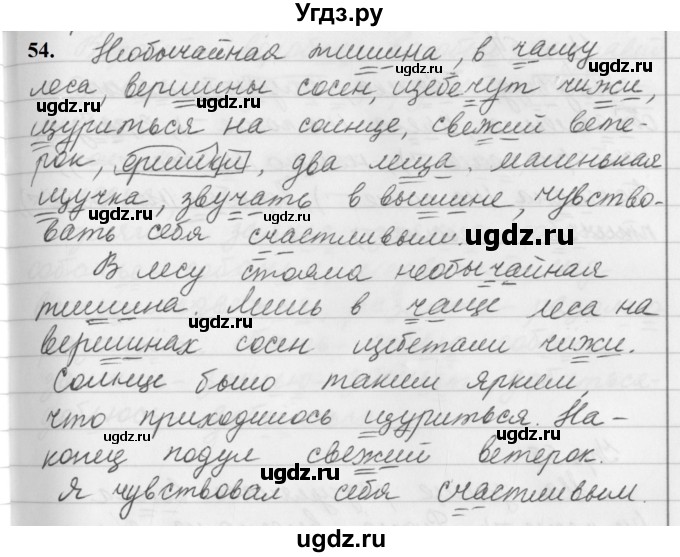 Угdз.ру
54. Необычайная тишина, в чащу
леса, вершины сосен, щебечут чижи,
щуриться на солнце, свежий вете-
рок, ёршики, два леща. маленькая
щучка, звучать в вышине, чувство-
вать себя счастливым.
В лесу стояла необычайная
тишина. Лишь в чаще леса на
вершинах сосен щебетали чижи.
Солнце было таким ярким,
что приходилось щуриться. На-
конец подул свежий ветерок.
Я чувствовал себя счастливым.
udgz.ru